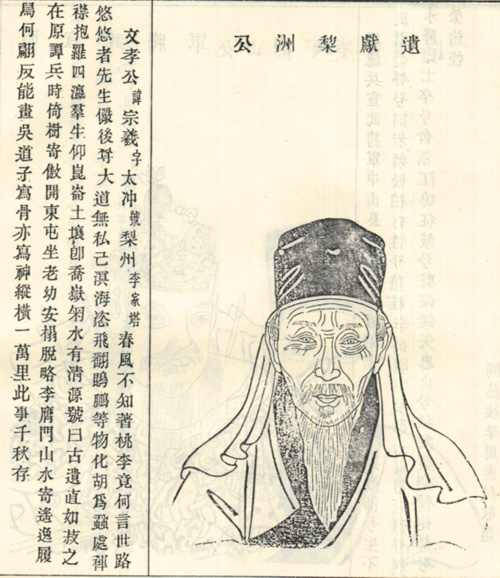 遺獻梨洲公
文孝公諱宗羲字太冲號梨州李家塔春風不知著桃李竟何言世路
悠悠者先生儼後尊大道無私己溟海恣飛翻鵾鵬等物化胡爲蝨處褌
襟抱羅四瀛羣生仰崑崙土壤卽喬嶽矧水有清源號曰古遺直如茲之
在原譚兵時倚樹寄傲開東屯坐老幼安榻脫略李膺門山水寄遙逸履
舄何翩反能畫吳道子寫骨亦寫神縱橫一萬里此事千秋存